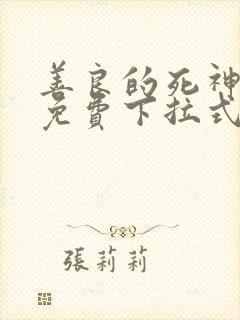 善良的死神
免費下拉式
張莉莉